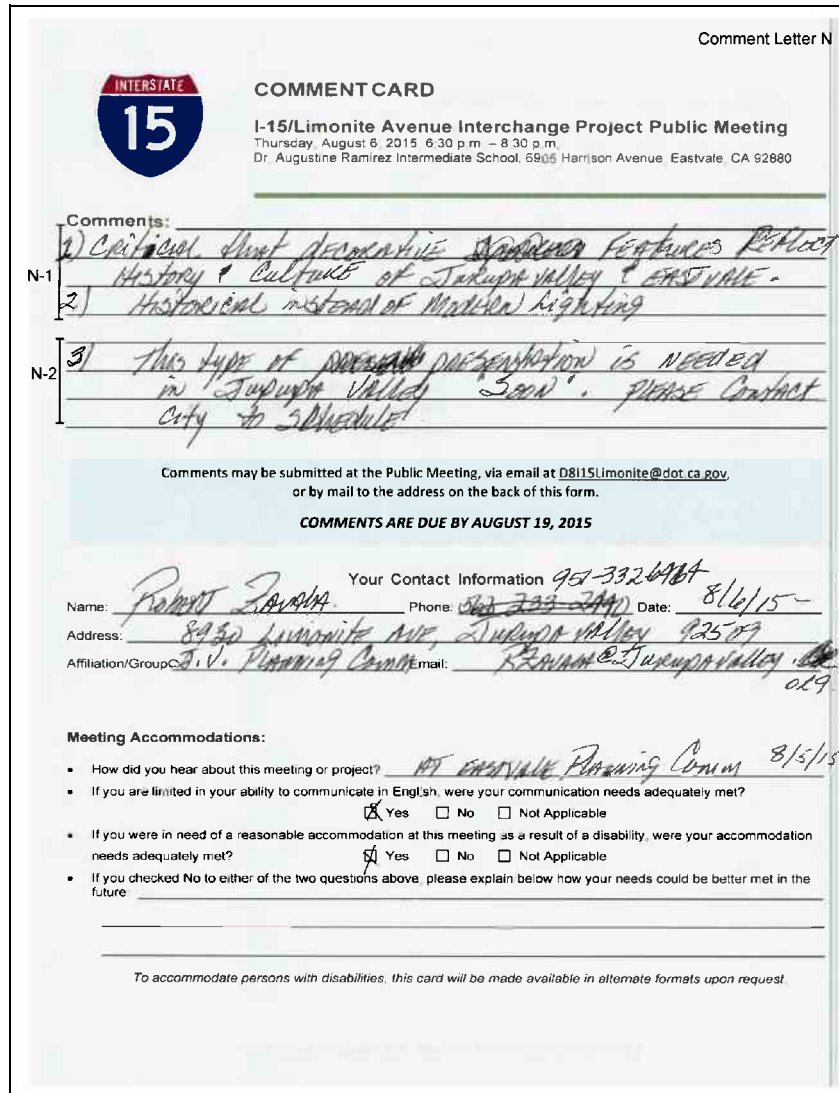 Comment Letter N
INTERSTATE
15
COMMENT CARD
I-15/Limonite Avenue Interchange Project Public Meeting
Thursday, August 6, 2015 6:30 p.m. – 8:30 p.m.
Dr. Augustine Ramirez Intermediate School, 6905 Harrison Avenue, Eastvale, CA 92880
Comments:
N-1
1) Critical that decorative features reflect
History & Culture of Jurupa Valley & Eastvale.
2) Historical instead of Modern Lighting
N-2
3) This type of presentation is needed
in Jurupa Valley "Soon". Please Contact
City to Schedule.
Comments may be submitted at the Public Meeting, via email at D8I15Limonite@dot.ca.gov,
or by mail to the address on the back of this form.
COMMENTS ARE DUE BY AUGUST 19, 2015
Your Contact Information 951-332-6464
Name: Robert Zavala Phone: Date: 8/6/15
Address: 8930 Limonite Ave, Jurupa Valley 92509
Affiliation/Group: J.V. Planning Comm Email: RZavala@Jurupavalley.
org
Meeting Accommodations:
• How did you hear about this meeting or project? At Eastvale Planning Comm 8/5/15
• If you are limited in your ability to communicate in English, were your communication needs adequately met?
Yes No Not Applicable
• If you were in need of a reasonable accommodation at this meeting as a result of a disability, were your accommodation
needs adequately met? Yes No Not Applicable
• If you checked No to either of the two questions above, please explain below how your needs could be better met in the
future:
To accommodate persons with disabilities, this card will be made available in alternate formats upon request.